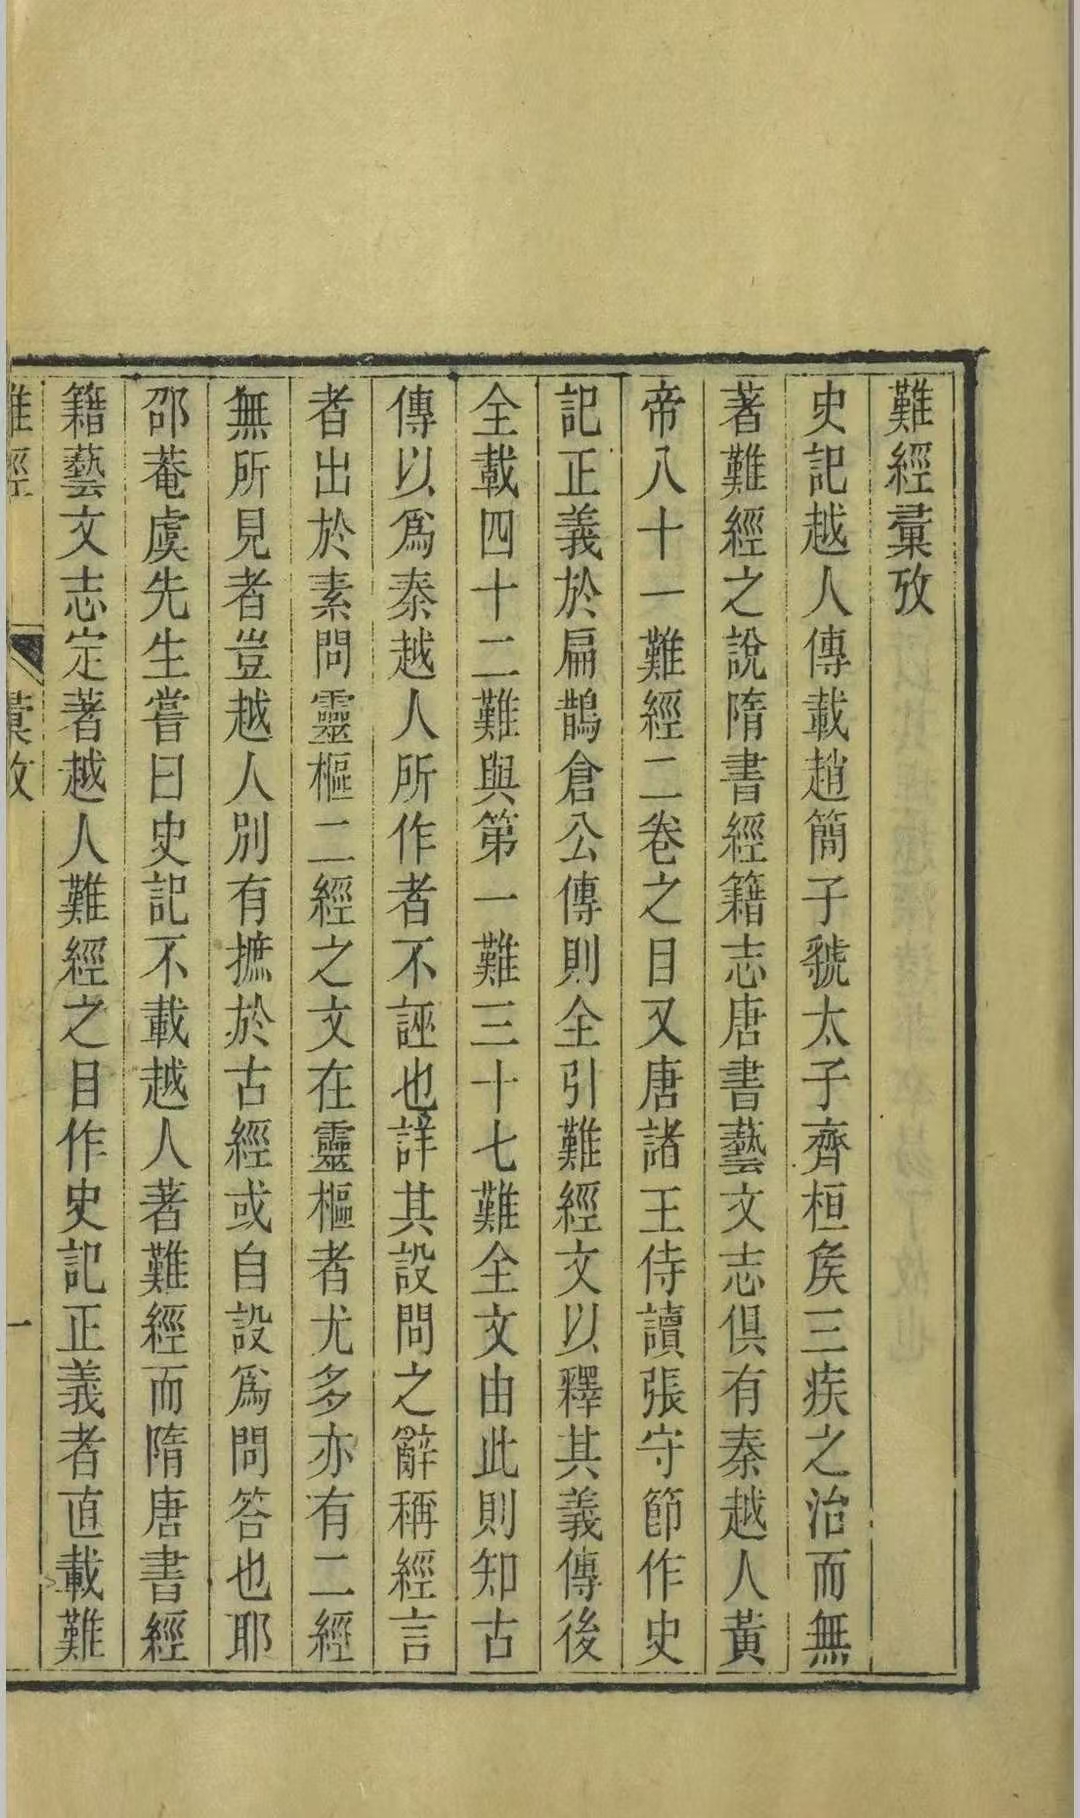 難經彙攷
史記越人傳載趙簡子虢太子齊桓矦三疾之治而無
著難經之說隋書經籍志唐書藝文志俱有秦越人黃
帝八十一難經二卷之目又唐諸王侍讀張守節作史
記正義於扁鵲倉公傳則全引難經文以釋其義傳後
全載四十二難與第一難三十七難全文由此則知古
傳以爲秦越人所作者不誣也詳其設問之辭稱經言
者出於素問靈樞二經之文在靈樞者尤多亦有二經
無所見者豈越人別有摭於古經或自設爲問答也耶
邵菴虞先生嘗曰史記不載越人著難經而隋唐書經
籍藝文志定著越人難經之目作史記正義者直載難
難經
彙攷
一